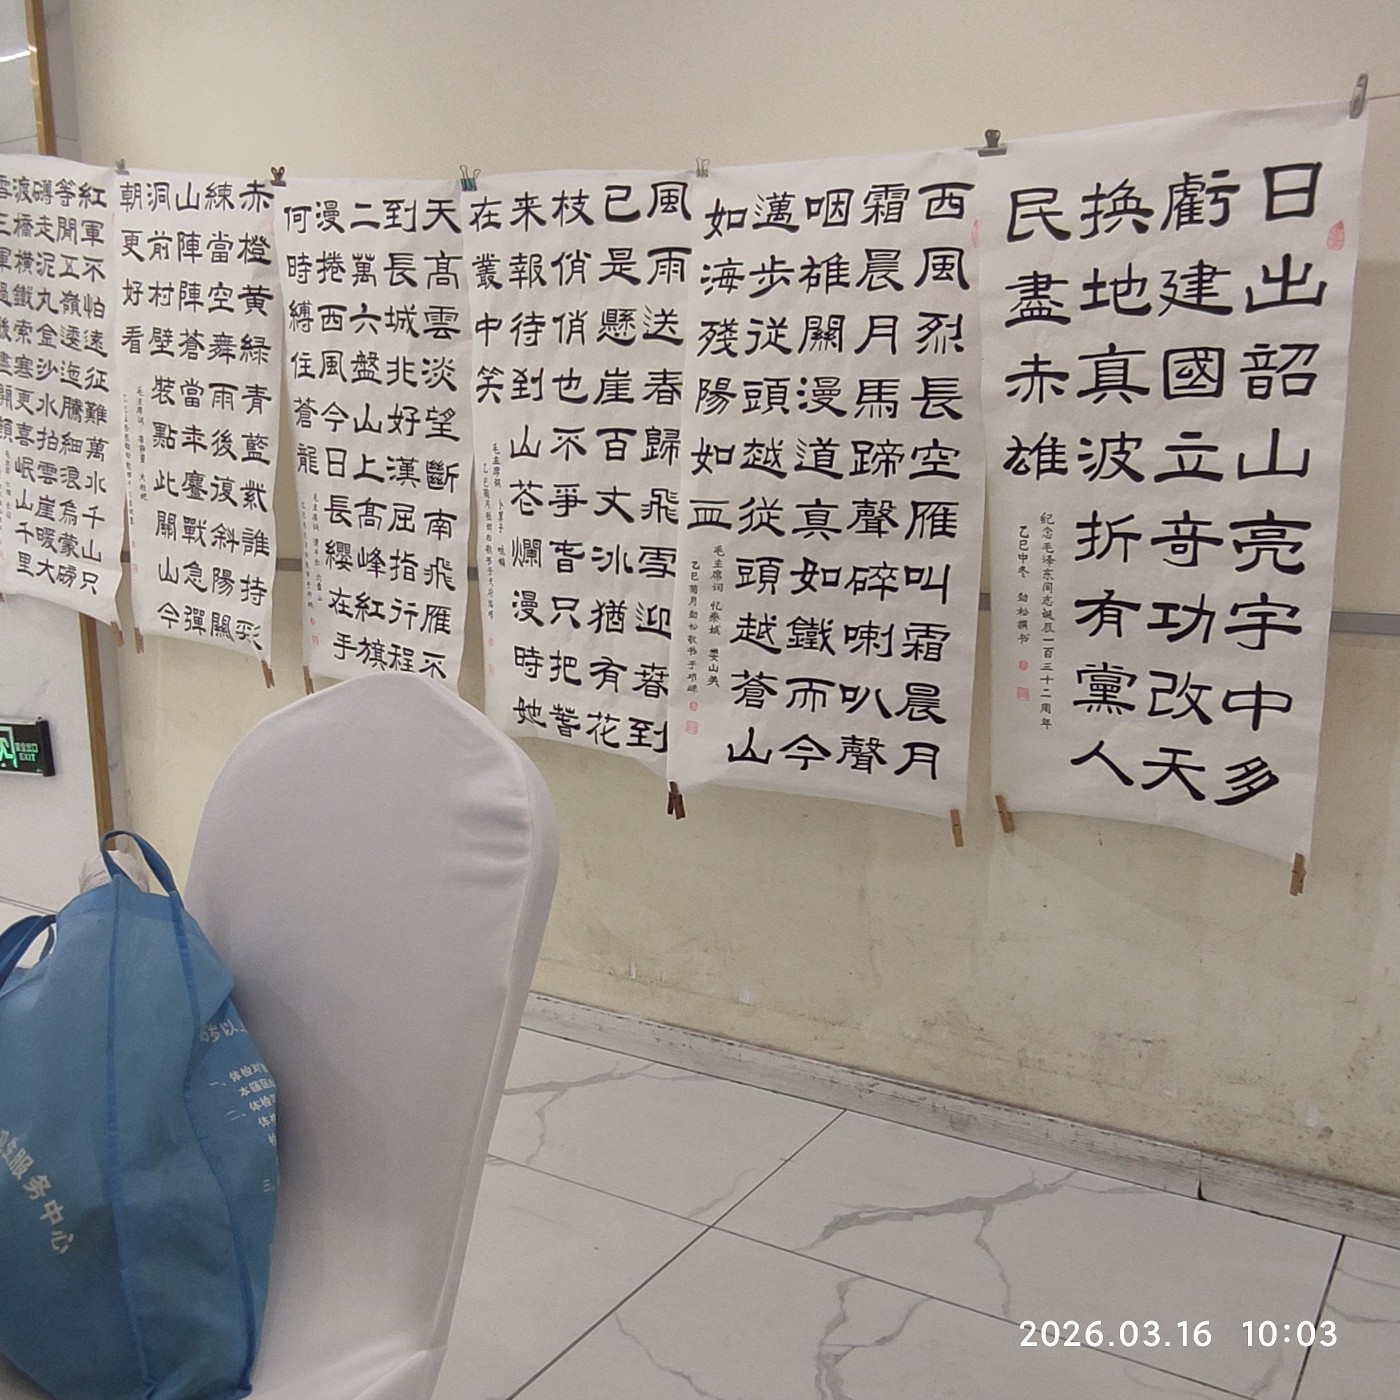 日出韶山亮宇中多
虧建國立奇功改天
换地真波折有黨人
民盡赤雄
纪念毛泽东同志诞辰一百三十二周年
乙巳中冬 劲松撰书
西風烈長空雁叫霜晨月
霜晨月馬蹄聲碎喇叭聲
咽雄關漫道真如鐵而今
邁步従頭越従頭越蒼山
如海殘陽如血
毛主席词 忆秦娥 娄山关
乙巳菊月劲松敬书于
風雨送春歸飛雪迎春到
已是懸崖百丈冰猶有花
枝俏俏也不爭春只把春
来報待到山花爛漫時她
在叢中笑
毛主席词 卜算子 咏梅
天高雲淡望斷南飛雁不
到長城非好漢屈指行程
二萬六盤山上高峰紅旗
漫捲西風今日長纓在手
何時縛住蒼龍
毛主席词 清平乐 六盘山
赤橙黄緑青藍紫誰持彩
練當空舞雨後復斜陽關
山陣陣蒼當年鏖戰急彈
洞前村壁裝點此關山今
朝更好看
毛主席词 菩萨蛮 大柏地
紅軍不怕遠征難萬水千山只
等閒五嶺逶迤騰細浪烏蒙磅
礴走泥丸金沙水拍雲崖暖大
渡橋横鐵索寒更喜岷山千里
雪三軍過後盡開顔
安全出口
EXIT
生服务中心
5岁以上
一、体检对
本辖区
二、体检
体检
三、
2026.03.16 10:03